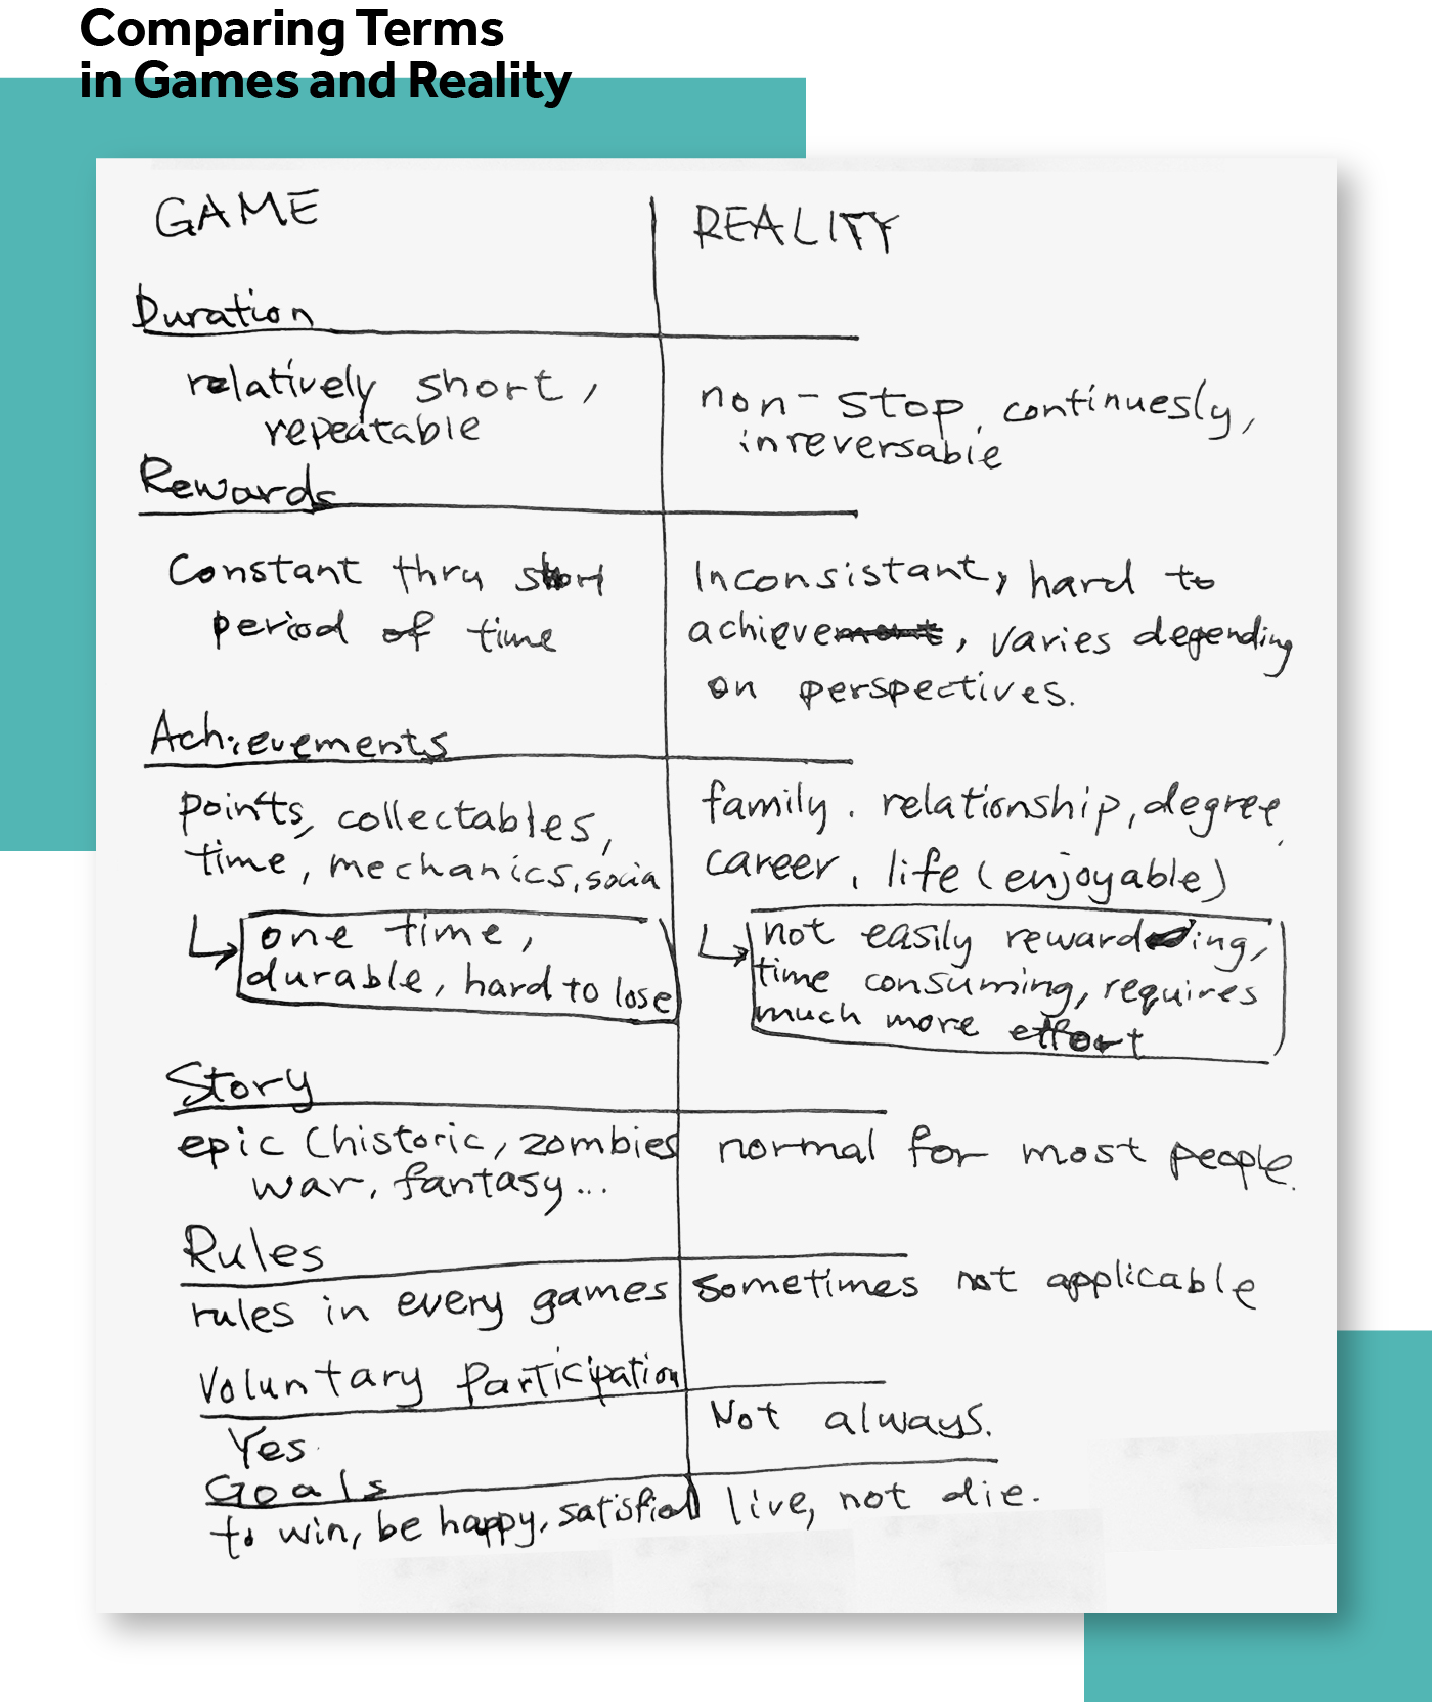 Comparing Terms
in Games and Reality
GAME
REALITY
Duration
relatively short,
repeatable
non-stop, continuesly,
inreversable
Rewards
Constant thru short
period of time
Inconsistant, hard to
achieve, varies degending
on perspectives.
Achievements
points, collectables,
time, mechanics, socia
family. relationship, degree,
career, life (enjoyable)
one time,
durable, hard to lose
not easily rewarding,
time consuming, requires
much more effort
Story
epic (historic, zombies
war, fantasy...
normal for most people.
Rules
rules in every games
sometimes not applicable
Voluntary Participation
Yes.
Not always.
Goals
to win, be happy, satisfied
live, not die.